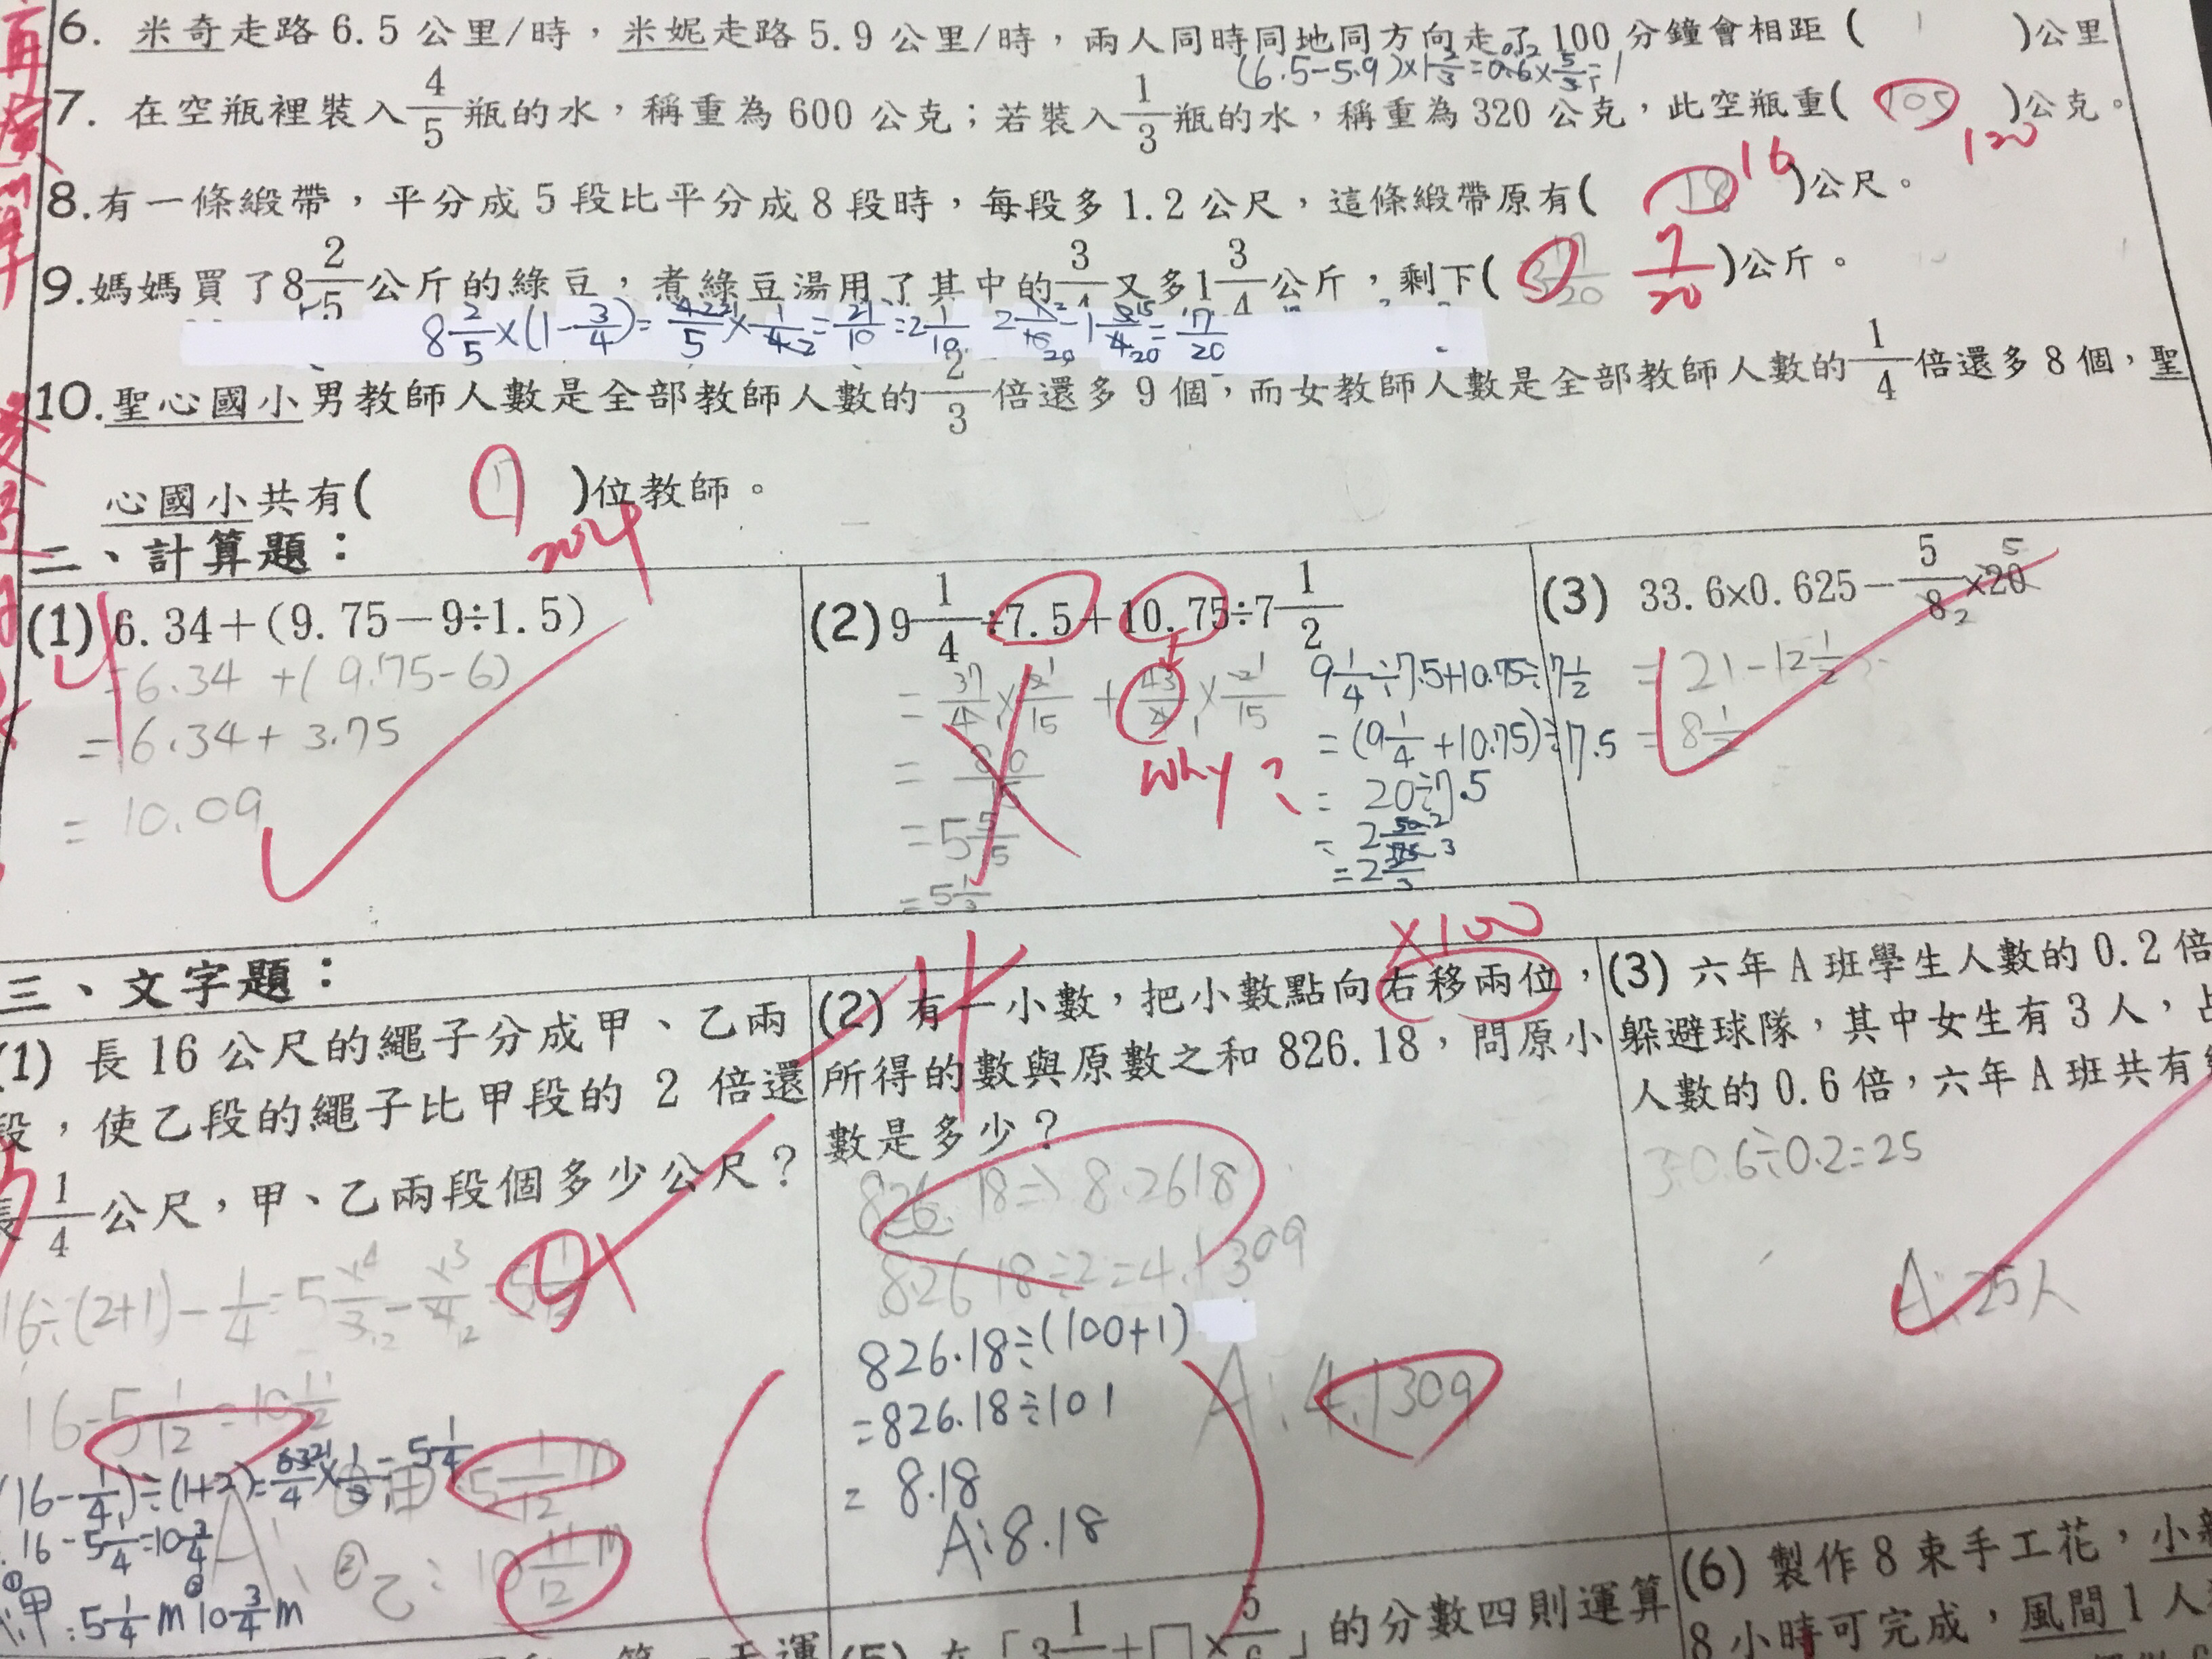 6. 米奇走路 6.5 公里/時，米妮走路 5.9 公里/時，兩人同時同地同方向走了 100 分鐘會相距 ( 1 )公里
(6.5-5.9)×1 2/3=0.6×5/3=1
7. 在空瓶裡裝入 4/5 瓶的水，稱重為 600 公克；若裝入 1/3 瓶的水，稱重為 320 公克，此空瓶重( 105 )公克。
120
16
8.有一條緞帶，平分成 5 段比平分成 8 段時，每段多 1.2 公尺，這條緞帶原有( 18 )公尺。
9.媽媽買了8 2/5 公斤的綠豆，煮綠豆湯用了其中的 3/4 又多1 3/4 公斤，剩下( 3 17/20 7/20 )公斤。
8 2/5×(1-3/4)=42/5×1/4=21/10=2 1/10 2 1/10-1 3/4=17/20
10.聖心國小男教師人數是全部教師人數的 2/3 倍還多 9 個，而女教師人數是全部教師人數的 1/4 倍還多 8 個，聖
心國小共有( 17 )位教師。
204
二、計算題：
(1) 6.34＋(9.75－9÷1.5)
=6.34 +(9.75-6)
=6.34+3.75
= 10.09
(2) 9 1/4 ÷7.5＋10.75÷7 1/2
= 37/4×2/15 + 43/4×2/15
= 80/15
=5 5/15
=5 1/3
why?
9 1/4÷7.5+10.75÷7 1/2
=(9 1/4+10.75)÷7.5
= 20÷7.5
= 2 50/75
=2 2/3
(3) 33.6×0.625－5/8×20
= 21-12 1/2
= 8 1/2
三、文字題：
(1) 長 16 公尺的繩子分成甲、乙兩
段，使乙段的繩子比甲段的 2 倍還
長 1/4 公尺，甲、乙兩段個多少公尺？
16÷(2+1)-1/4=5 1/3-1/4=5 1/12
16-5 1/12=10 11/12
(16-1/4)÷(1+2)=63/4×1/3=5 1/4
16-5 1/4=10 3/4
A: ①甲:5 1/12 m
②乙:10 11/12 m
A:①甲:5 1/4 m ②10 3/4 m
×100
(2) 有一小數，把小數點向右移兩位，
所得的數與原數之和 826.18，問原小
數是多少？
826.18=>8.2618
8.2618÷2=4.1309
A:4.1309
826.18÷(100+1)
=826.18÷101
= 8.18
A:8.18
(3) 六年 A 班學生人數的 0.2 倍
躲避球隊，其中女生有 3 人，占
人數的 0.6 倍，六年 A 班共有
3÷0.6÷0.2=25
A:25人
(5) 在「3 1/ +□×5/6」的分數四則運算
(6) 製作 8 束手工花，小
8 小時可完成，風間 1 人